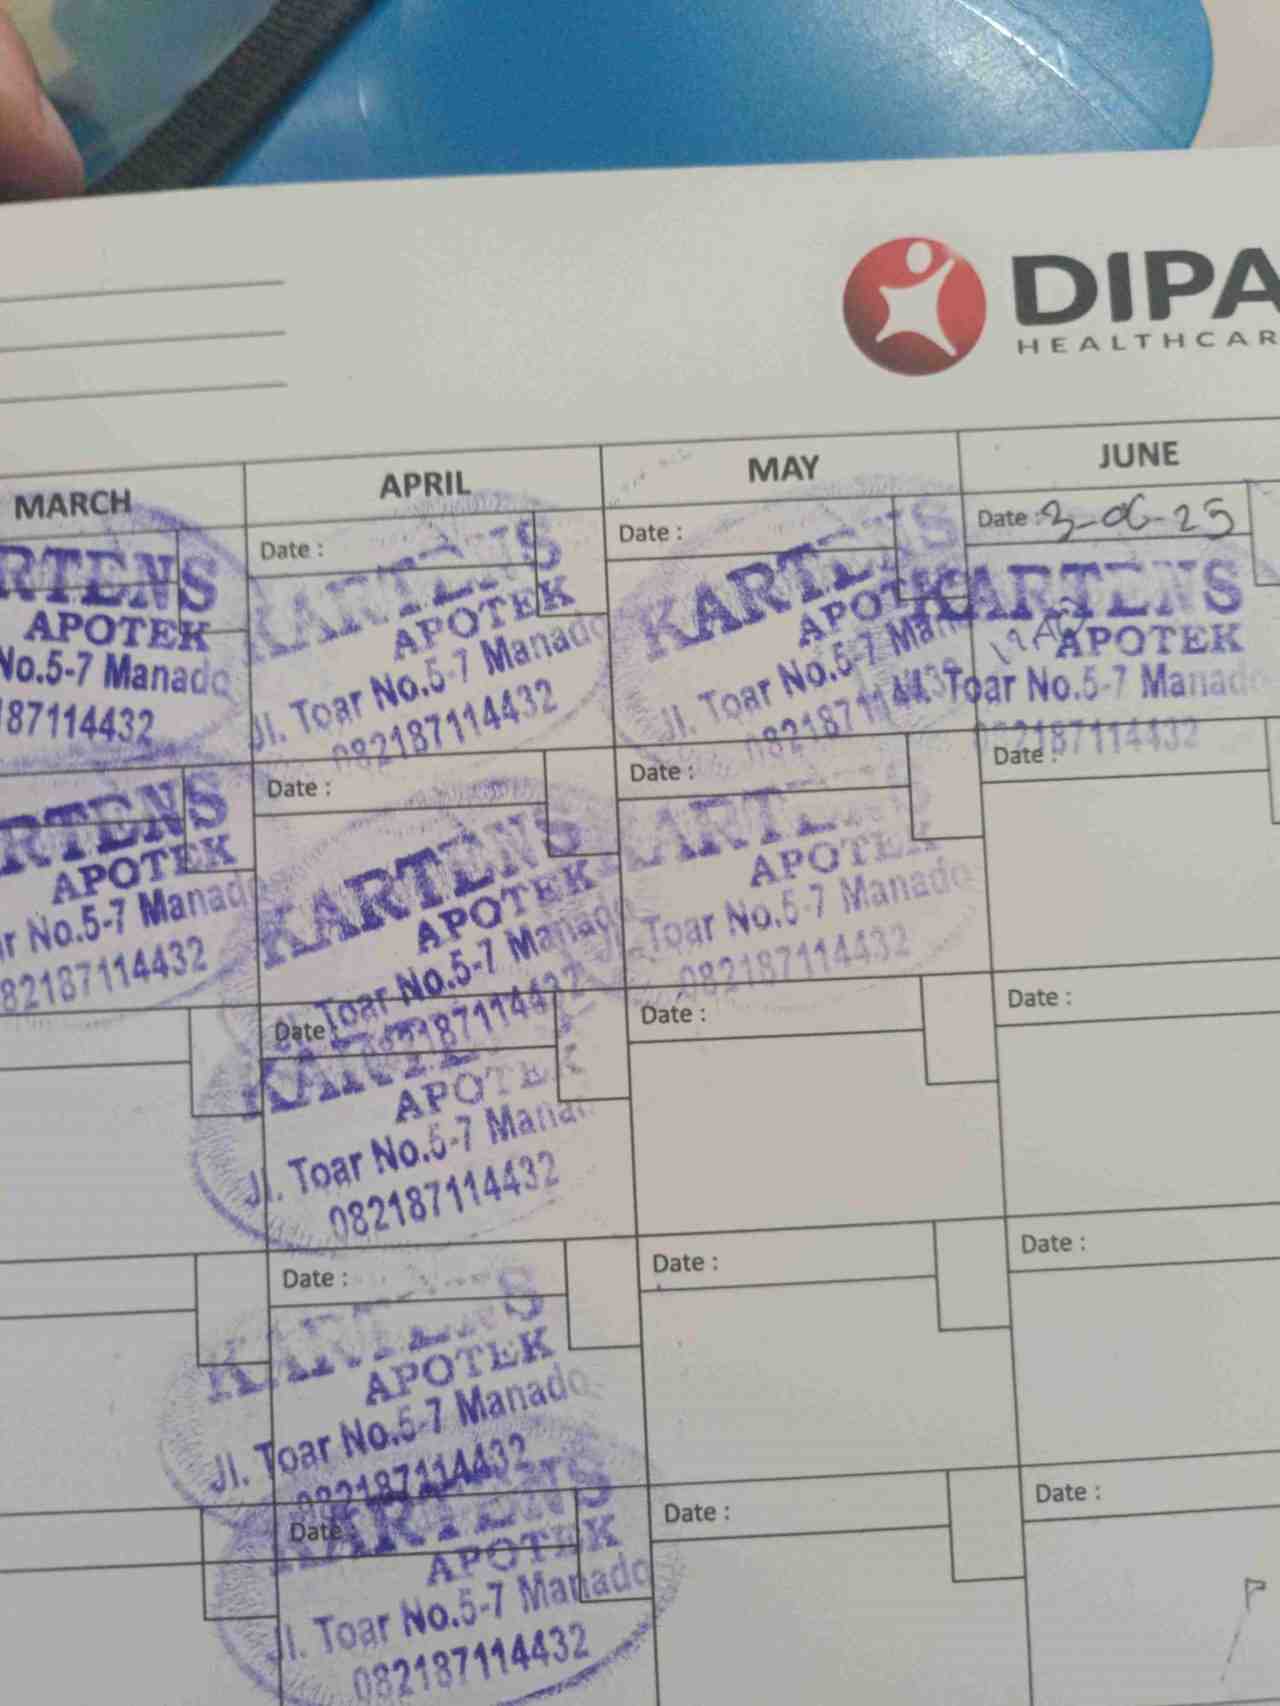 DIPA
HEALTHCAR
MARCH
APRIL
MAY
JUNE
RTENS
APOTEK
No.5-7 Manado
187114432
Date :
KARTENS
APOTEK
Jl. Toar No.5-7 Manado
082187114432
Date :
KARTENS
APOTEK
Jl. Toar No.5-7 Man
082187114432
Date : 3-06-25
KARTENS
APOTEK
Toar No.5-7 Manado
082187114432
RTENS
APOTEK
r No.5-7 Manad
82187114432
Date :
KARTENS
APOTEK
Jl. Toar No.5-7 Manado
082187114432
Date :
KARTENS
APOTEK
Jl. Toar No.5-7 Manado
082187114432
Date :
Date
KARTENS
APOTEK
Jl. Toar No.5-7 Manad
082187114432
Date :
Date :
Date :
KARTENS
APOTEK
Jl. Toar No.5-7 Manado
082187114432
Date :
Date :
Date :
KARTENS
APOTEK
Jl. Toar No.5-7 Manado
082187114432
Date :
Date :
P